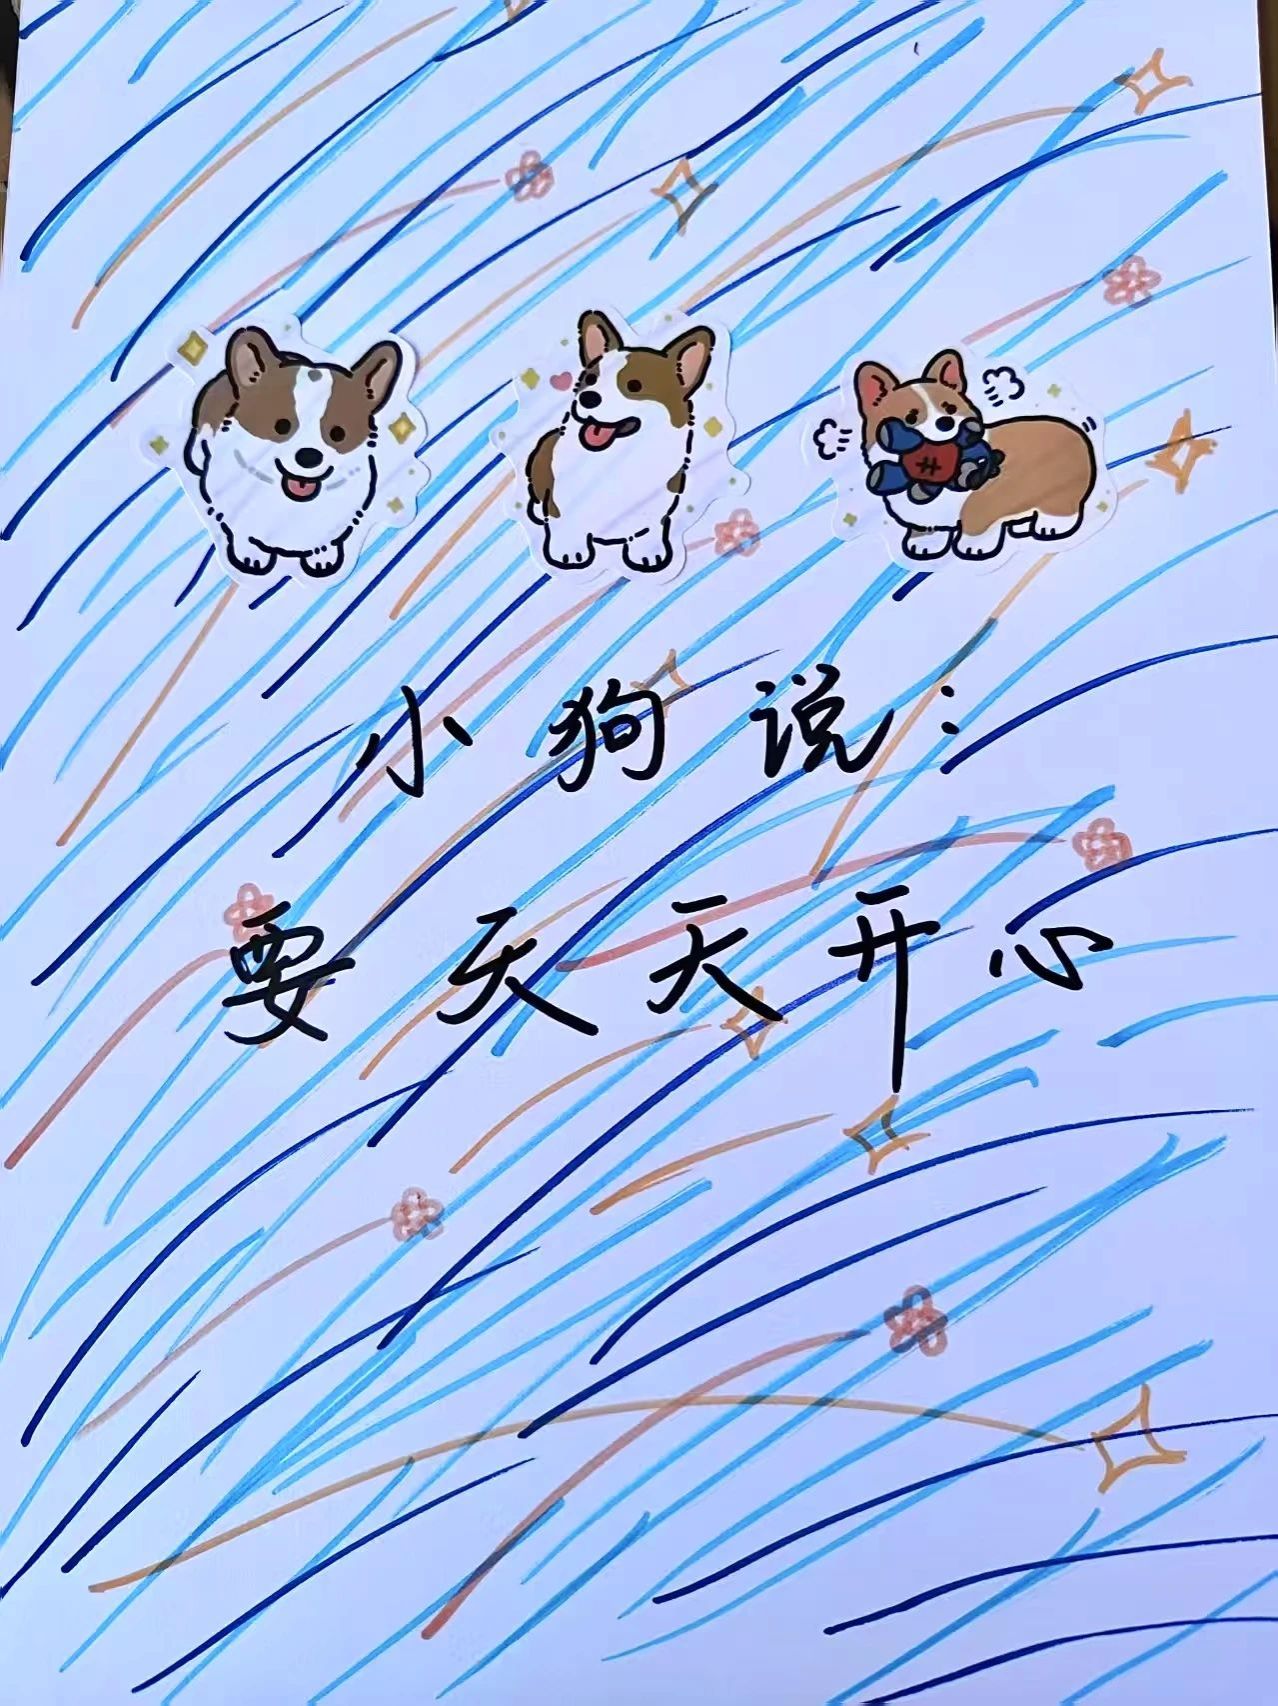 小狗说：
要天天开心